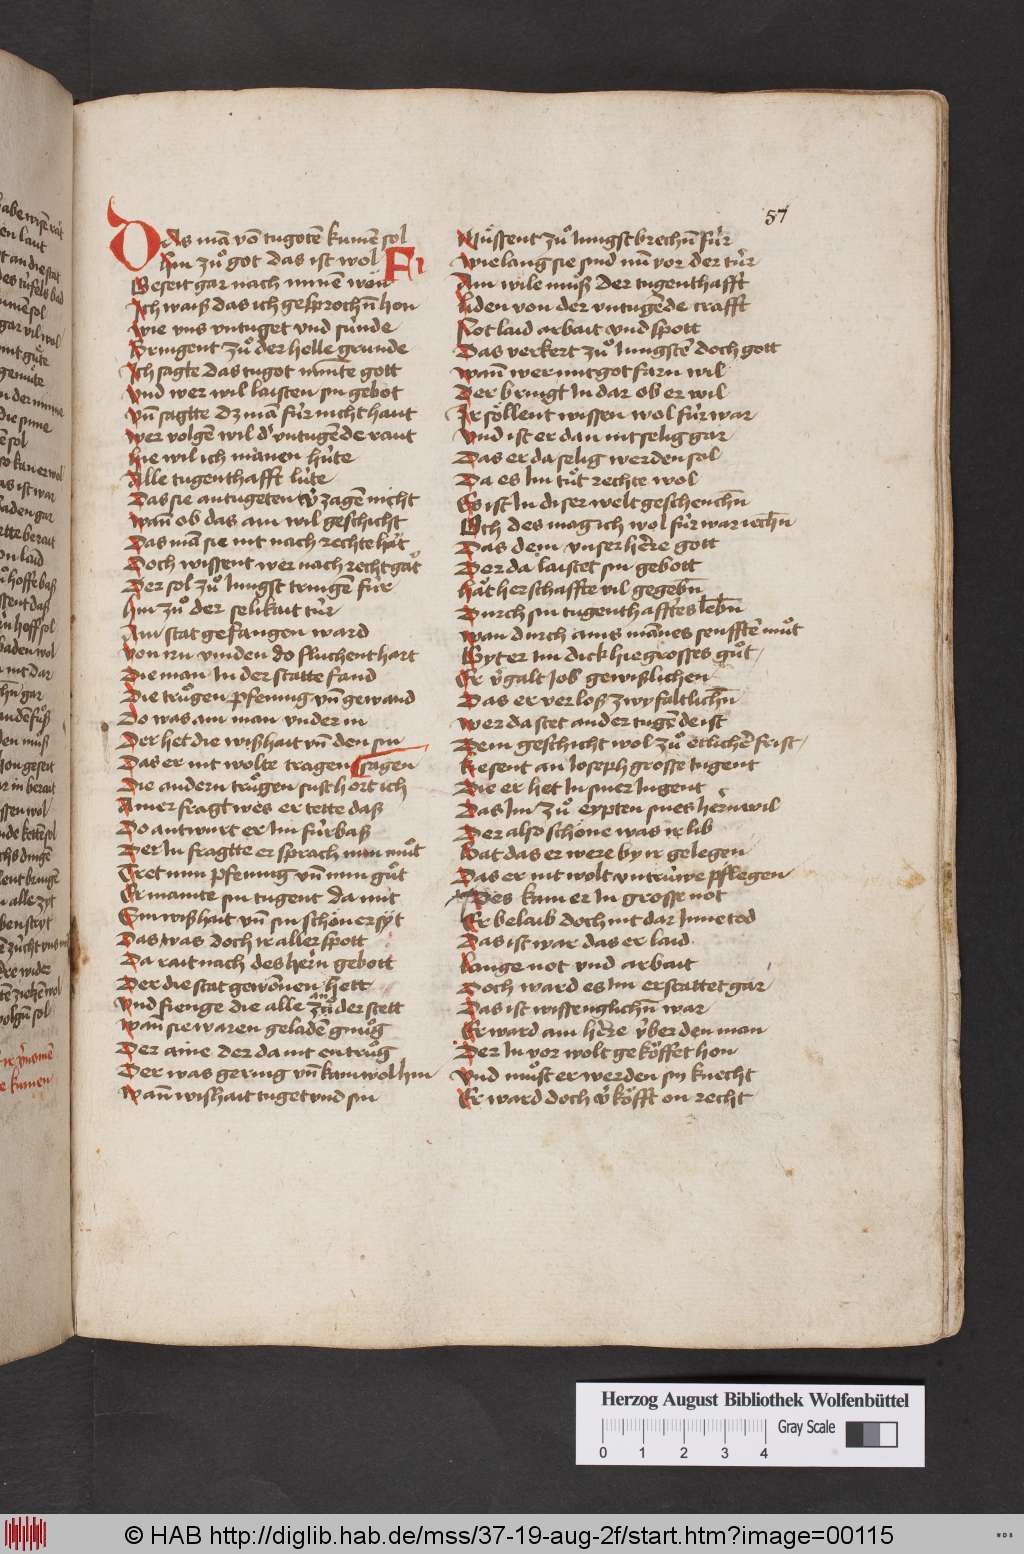 57
Das mā vō tugotē kumē sol
Hin zuͦ got das ist wol
Beseit gar nach minnē won
Fi
Ich waiß das ich gesprochn̄ hon
Wie vns vntuget vnd sünde
Bringent zuͦ der helle grunde
Ich sagte das tugot minnte gott
Vnd wer wil laisten sin gebot
Vn̄ sagtte dz mā für nicht haut
Wer volgē wil dʼ vntugende raut
Hie wil ich manen hüte
Alle tugenthafft lüte
Das sie an tugeten vʼzagē nicht
Wan̄ ob das am wil geschicht
Das mā sie nit nach rechte hat
Doch wissent wer nach recht gat
Der sol zuͦ Jungst tringē für
Hin zuͦ der selikait tür
Ain stat gefangen ward
Von irn vinden do fluchent hart
Die man In der statte fand
Die truͦgen pfennig vn̄ gewand
Do was ain man vnder in
Der het die wißhait vn̄ den sin
Das er nit wolte tragen
sagen
Die andern truͦgen susthort ich
Ainer fragt wes er tette daß
Do antwurt er Im fürbaß
Der In fragtte er sprach min muͦt
Tret min pfennig vn̄ min guͦt
Er mainte sin tugent da mit
Sin wißhait vn̄ sin schön ersyt
Das was doch ir aller spott
Da rait nach des hern gebott
Der die stat gewönnen hett
Vnd fienge die alle an zuͦ der stett
Wan̄ sie waren geladē gnuͦg
Der aine der da nit entruͦg
Der was gering vn̄ kam wol hin
Wan̄ wishait tuget vnd sin
Muͤssent zuͦ Jungst brechn̄ für
Wie lang sie sind nun vor der tür
Ain wile muß der tugenthafft
Liden von der vntugēde crafft
Not laid arbait vnd spott
Das verkert zuͦ Jungstē doch gott
Wan̄ wer mit got farn wil
Der bringt In dar ob er wil
Ir söllent wissen wol für war
Vnd ist er dan nit selig gar
Das er da selig werden sol
Da es Im tuͦt rechte wol
Es ist In diser welt geschenchn̄
Och des mag ich wol für war iechn̄
Das dem vnser here gott
Der da laistet sin gebott
Hat herschaffte vil gegebn̄
Durch sin tugenthafftes lebn̄
Wan durch ains mānes senfftē muͦt
Gyt er im dick hie grosses guͦt
Er vʼgalt Job gewißlichen
Das er verloß zwyfaltlichn̄
Wer da stet an der tugēde ist
Dem geschicht wol zuͦ etlichē frist
Resent an Joseph grosse tugent
Die er het In siner Jugent
Das Im zuͦ eypten sines hern wil
Der also schöne was ir lib
Bat das er were by ir gelegen
Das er nit wolt vntrüwe pflegen
Des kam er In grosse not
Er belaib doch nit dar Inne tod
Das ist war das er laid
Lange not vnd arbait
Doch ward es Im erstattet gar
Das ist wissenglichn̄ war
Er ward ain here yber den man
Der In vor wolt geköffet hon
Vnd muͦst er werden sin knecht
Er ward doch vʼköfft on recht
Herzog August Bibliothek Wolfenbüttel
0 1 2 3 4
Gray Scale
© HAB http://diglib.hab.de/mss/37-19-aug-2f/start.htm?image=00115